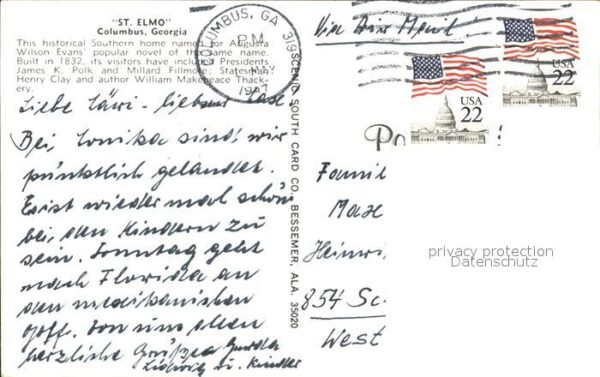 "ST. ELMO"
Columbus, Georgia
This historical Southern home named for Augusta
Wilson Evans' popular novel of the same name.
Built in 1832, its visitors have included Presidents
James K. Polk and Millard Fillmore; Statesman
Henry Clay and author William Makepeace Thack-
ery.
Liebe Läwi - lieber
Bei sind wir
pünktlich gelandet.
Es ist wieder mal schön
bei den Kindern zu
sein. Sonntag geht
nach Florida an
den mexikanischen
Golf. Von uns allen
herzliche Grüße
Ludwig u. Kinder
SCENIC SOUTH CARD CO. BESSEMER, ALA. 35020
COLUMBUS, GA 319
PM
MAY
1987
Via Air Mail
USA
22
USA
22
Po
Famil
Max
Heinri
854 Sc
West
privacy protection
Datenschutz